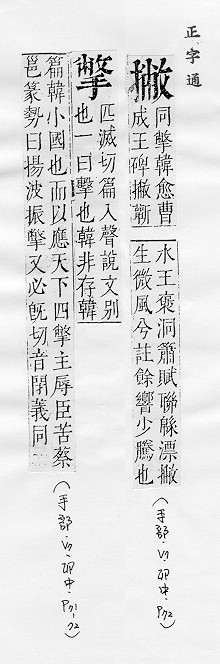 正字通
撇
同撆韓愈曹
成王碑撇蘄
水王褒洞簫賦聯緜漂撇
生微風兮註餘響少騰也
(手部 卯中 P72)
撆
匹滅切篇入聲說文別
也一曰擊也韓非存韓
篇韓小國也而以應天下四撆主辱臣苦蔡
邕篆勢曰揚波振撆又必旣切音閉義同
(手部 卯中 P71,72)